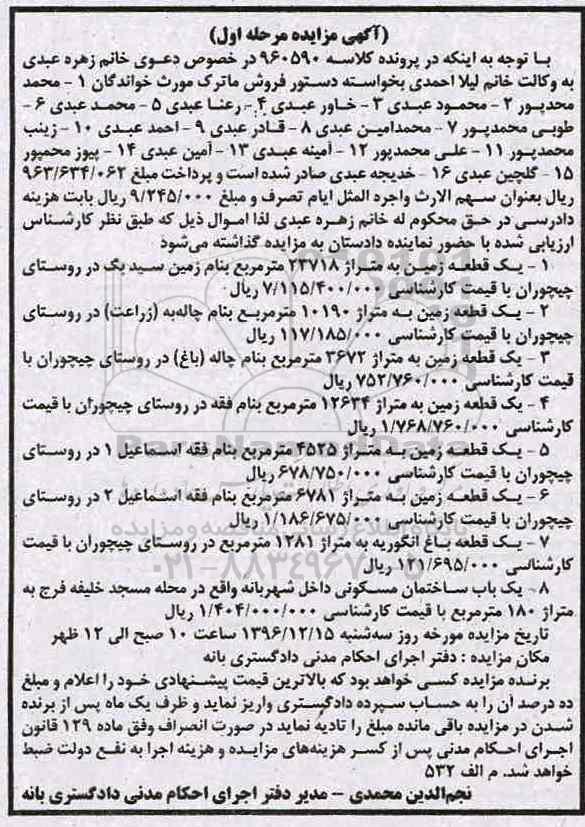 (آگهی مزایده مرحله اول)
با توجه به اینکه در پرونده کلاسه ۹۶۰۵۹۰ در خصوص دعوی خانم زهره عبدی
به وکالت خانم لیلا احمدی بخواسته دستور فروش ماترک مورث خواندگان ۱ - محمد
محدپور ۲ - محمود عبدی ۳ - خاور عبدی ۴ - رعنا عبدی ۵ - محمد عبدی ۶ -
طوبی محمدپور ۷ - محمدامین عبدی ۸ - قادر عبدی ۹ - احمد عبدی ۱۰ - زینب
محمدپور ۱۱ - علی محمدپور ۱۲ - آمینه عبدی ۱۳ - آمین عبدی ۱۴ - پیوز محمپور
۱۵ - گلچین عبدی ۱۶ - خدیجه عبدی صادر شده است و پرداخت مبلغ ۹۶۳/۶۳۴/۰۶۲
ریال بعنوان سهم الارث واجره المثل ایام تصرف و مبلغ ۹/۲۴۵/۰۰۰ ریال بابت هزینه
دادرسی در حق محکوم له خانم زهره عبدی لذا اموال ذیل که طبق نظر کارشناس
ارزیابی شده با حضور نماینده دادستان به مزایده گذاشته می‌شود
۱ - یک قطعه زمین به متراژ ۲۳۷۱۸ مترمربع بنام زمین سید بگ در روستای
چیچوران با قیمت کارشناسی ۷/۱۱۵/۴۰۰/۰۰۰ ریال
۲ - یک قطعه زمین به متراژ ۱۰۱۹۰ مترمربع بنام چاله‌به (زراعت) در روستای
چیچوران با قیمت کارشناسی ۱۱۷/۱۸۵/۰۰۰ ریال
۳ - یک قطعه زمین به متراژ ۳۶۷۲ مترمربع بنام چاله (باغ) در روستای چیچوران با
قیمت کارشناسی ۷۵۲/۷۶۰/۰۰۰ ریال
۴ - یک قطعه زمین به متراژ ۱۲۶۳۴ مترمربع بنام فقه در روستای چیچوران با قیمت
کارشناسی ۱/۷۶۸/۷۶۰/۰۰۰ ریال
۵ - یک قطعه زمین به متراژ ۴۵۲۵ مترمربع بنام فقه اسماعیل ۱ در روستای
چیچوران با قیمت کارشناسی ۶۷۸/۷۵۰/۰۰۰ ریال
۶ - یک قطعه زمین به متراژ ۶۷۸۱ مترمربع بنام فقه اسماعیل ۲ در روستای
چیچوران با قیمت کارشناسی ۱/۱۸۶/۶۷۵/۰۰۰ ریال
۷ - یک قطعه باغ انگوریه به متراژ ۱۲۸۱ مترمربع در روستای چیچوران با قیمت
کارشناسی ۱۲۱/۶۹۵/۰۰۰ ریال
۸ - یک باب ساختمان مسکونی داخل شهربانه واقع در محله مسجد خلیفه فرج به
متراژ ۱۸۰ مترمربع با قیمت کارشناسی ۱/۴۰۴/۰۰۰/۰۰۰ ریال
تاریخ مزایده مورخه روز سه‌شنبه ۱۳۹۶/۱۲/۱۵ ساعت ۱۰ صبح الی ۱۲ ظهر
مکان مزایده : دفتر اجرای احکام مدنی دادگستری بانه
برنده مزایده کسی خواهد بود که بالاترین قیمت پیشنهادی خود را اعلام و مبلغ
ده درصد آن را به حساب سپرده دادگستری واریز نماید و ظرف یک ماه پس از برنده
شدن در مزایده باقی مانده مبلغ را تادیه نماید در صورت انصراف وفق ماده ۱۲۹ قانون
اجرای احکام مدنی پس از کسر هزینه‌های مزایده و هزینه اجرا به نفع دولت ضبط
خواهد شد. م الف ۵۳۲
نجم‌الدین محمدی - مدیر دفتر اجرای احکام مدنی دادگستری بانه
ParsNamadData
۰۲۱-۸۸۳۴۹۶۷۰-۵